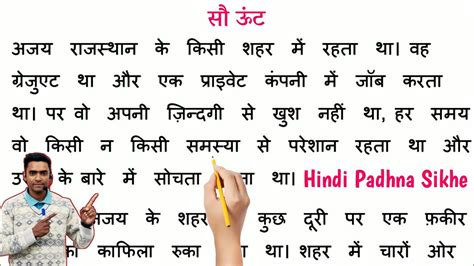 सौ ऊंट
अजय राजस्थान के किसी शहर में रहता था। वह
ग्रेजुएट था और एक प्राइवेट कंपनी में जॉब करता
था। पर वो अपनी ज़िन्दगी से खुश नहीं था, हर समय
वो किसी न किसी समस्या से परेशान रहता था और
के बारे में सोचता था। Hindi Padhna Sikhe
अजय के शहर कुछ दूरी पर एक फ़कीर
काफिला रुका था। शहर में चारों ओर